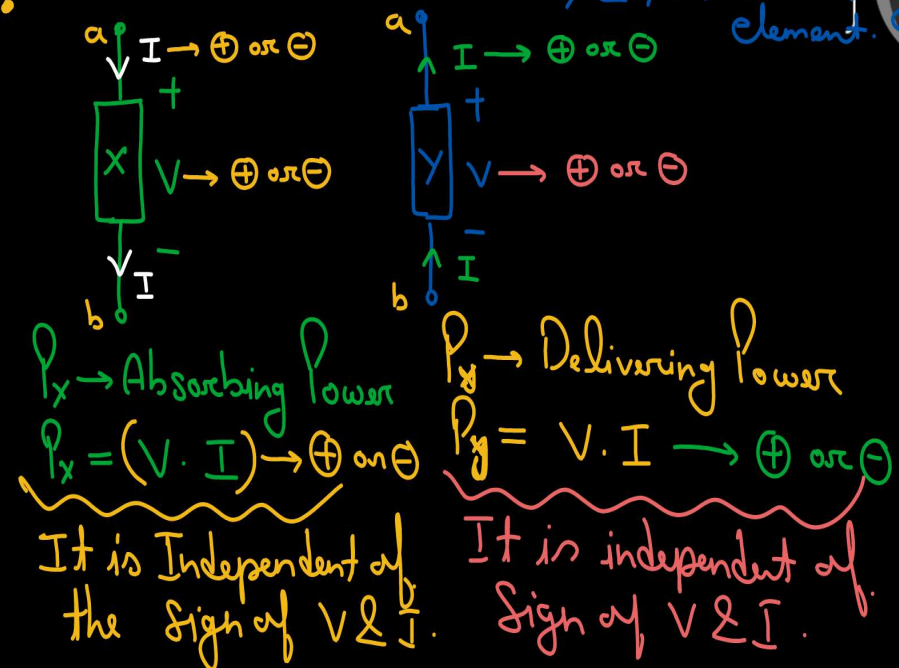 element.
a I → ⊕ or ⊖
+
X V → ⊕ or ⊖
-
I
b
a I → ⊕ or ⊖
+
Y V → ⊕ or ⊖
-
I
b
Px → Absorbing Power
Px = (V . I) → ⊕ or ⊖
It is Independent of
the Sign of V & I.
Py → Delivering Power
Py = V . I → ⊕ or ⊖
It is independent of
Sign of V & I.